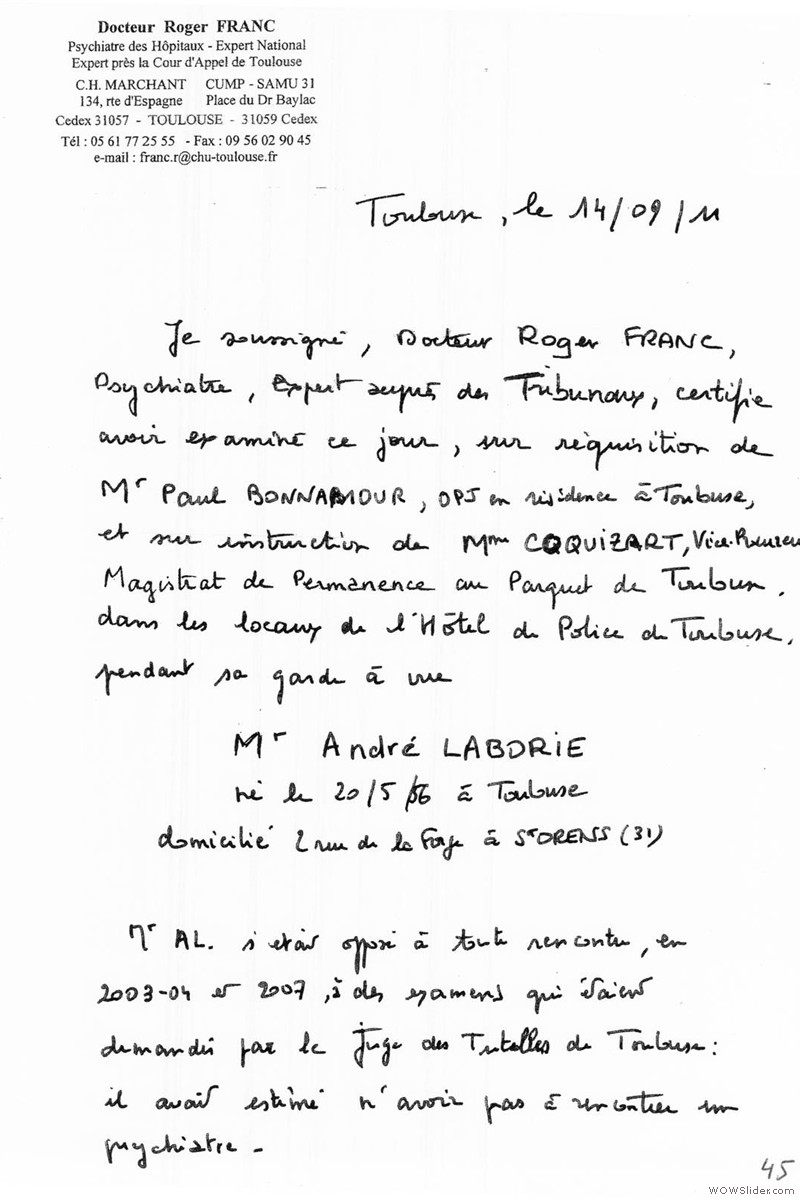 Docteur Roger FRANC
Psychiatre des Hôpitaux - Expert National
Expert près la Cour d'Appel de Toulouse
C.H. MARCHANT CUMP - SAMU 31
134, rte d'Espagne Place du Dr Baylac
Cedex 31057 - TOULOUSE - 31059 Cedex
Tél : 05 61 77 25 55 - Fax : 09 56 02 90 45
e-mail : franc.r@chu-toulouse.fr
Toulouse, le 14/09/11
Je soussigné, Docteur Roger FRANC,
Psychiatre, Expert auprès des Tribunaux, certifie
avoir examiné ce jour, sur réquisition de
Mr Paul BONNAMOUR, OPJ en résidence à Toulouse,
et sur instruction de Mme COQUIZART, Vice-Procureu
Magistrat de Permanence au Parquet de Toulouse,
dans les locaux de l'Hôtel de Police de Toulouse,
pendant sa garde à vue
Mr André LABORIE
né le 20/5/56 à Toulouse
domicilié 2 rue de la Forge à St ORENS (31)
Mr AL. s'était opposé à toute rencontre, en
2003-04 et 2007, à des examens qui étaient
demandés par le Juge des Tutelles de Toulouse :
il avait estimé n'avoir pas à rencontrer un
psychiatre -
45
WOWSlider.com